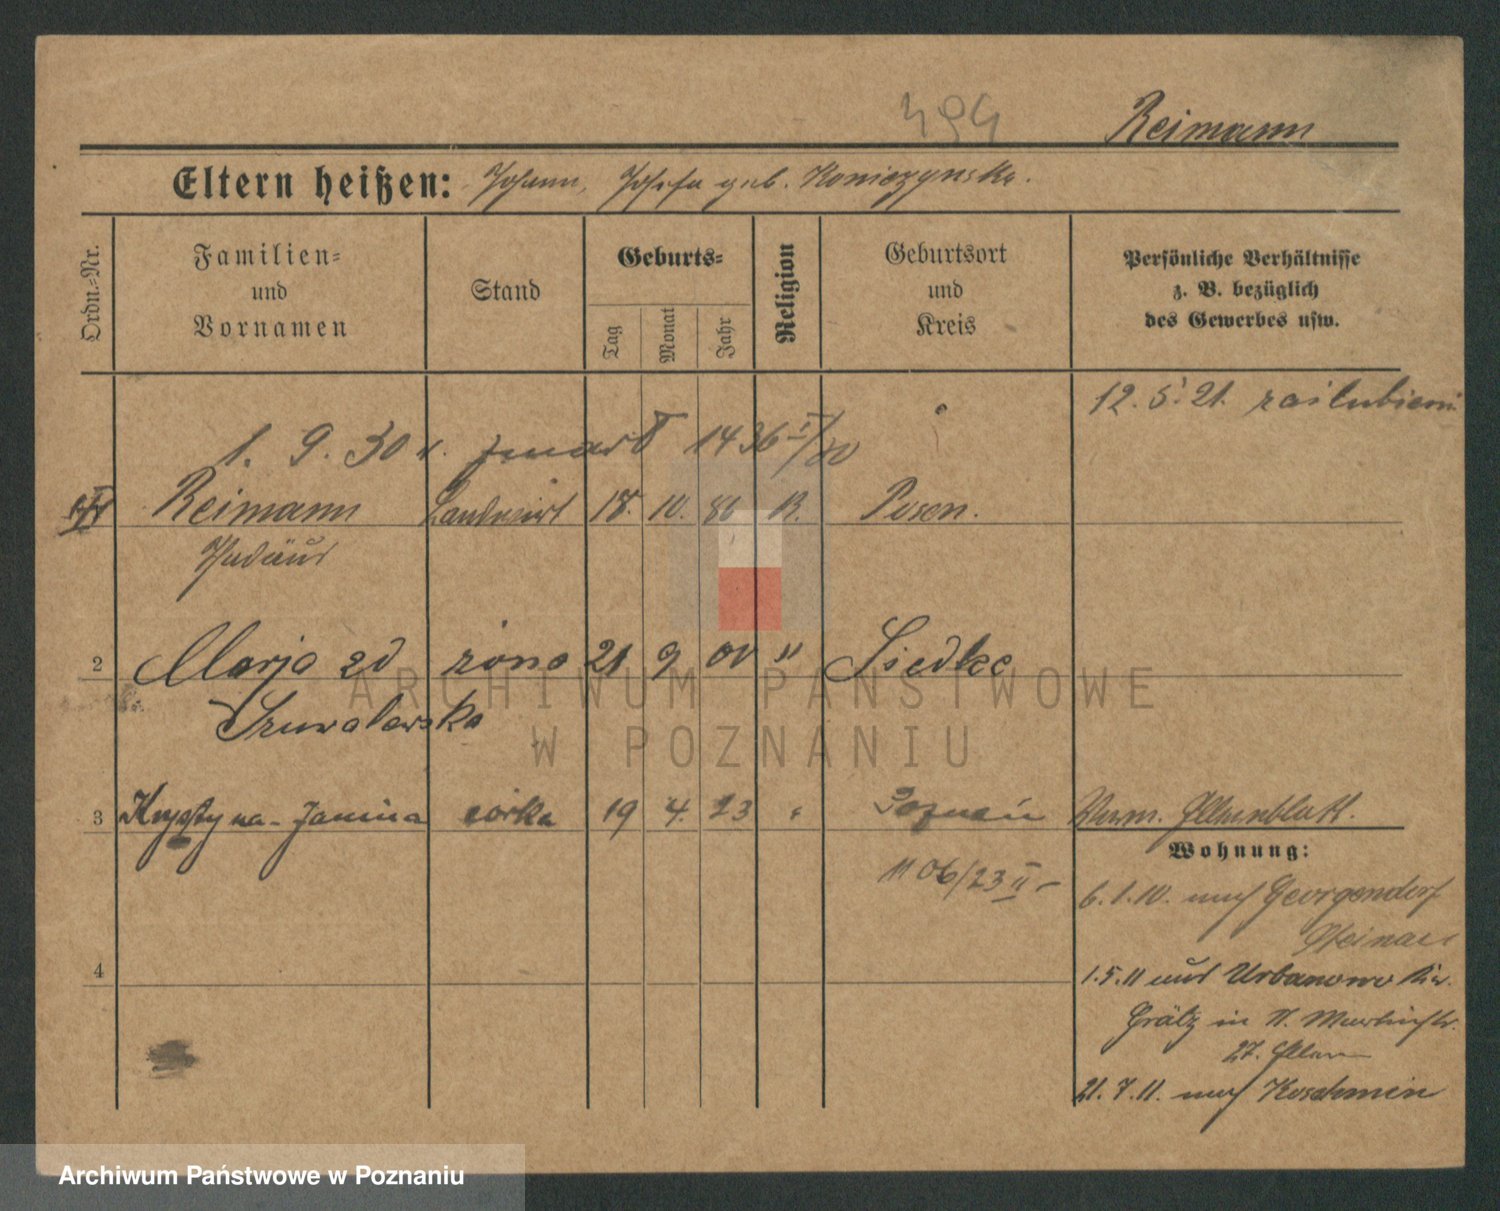 494 Reimann
Eltern heißen: Johann, Josefa geb. Konieczynska.
Ordn.-Nr.
Familien-
und
Vornamen
Stand
Geburts-
Tag
Monat
Jahr
Religion
Geburtsort
und
Kreis
Persönliche Verhältnisse
z. B. bezüglich
des Gewerbes usw.
12. 5. 21.
1. 9. 30
Reimann Landwirt 18. 10. 86 K. Posen.
Thadäus
2 Marja zd żona 21 9 00 " Siedlce
Szuwalewska
3 Krystyna-Janina córka 19 4. 23 " Poznań
1106/23 II
Wohnung:
6.1.10. nach Georgendorf
Steinau
1.5.11 aus Urbanowo Kr.
Grätz in St. Martinstr.
27.
21.7.11. nach Koschmin
4
ARCHIWUM PAŃSTWOWE
W POZNANIU
Archiwum Państwowe w Poznaniu